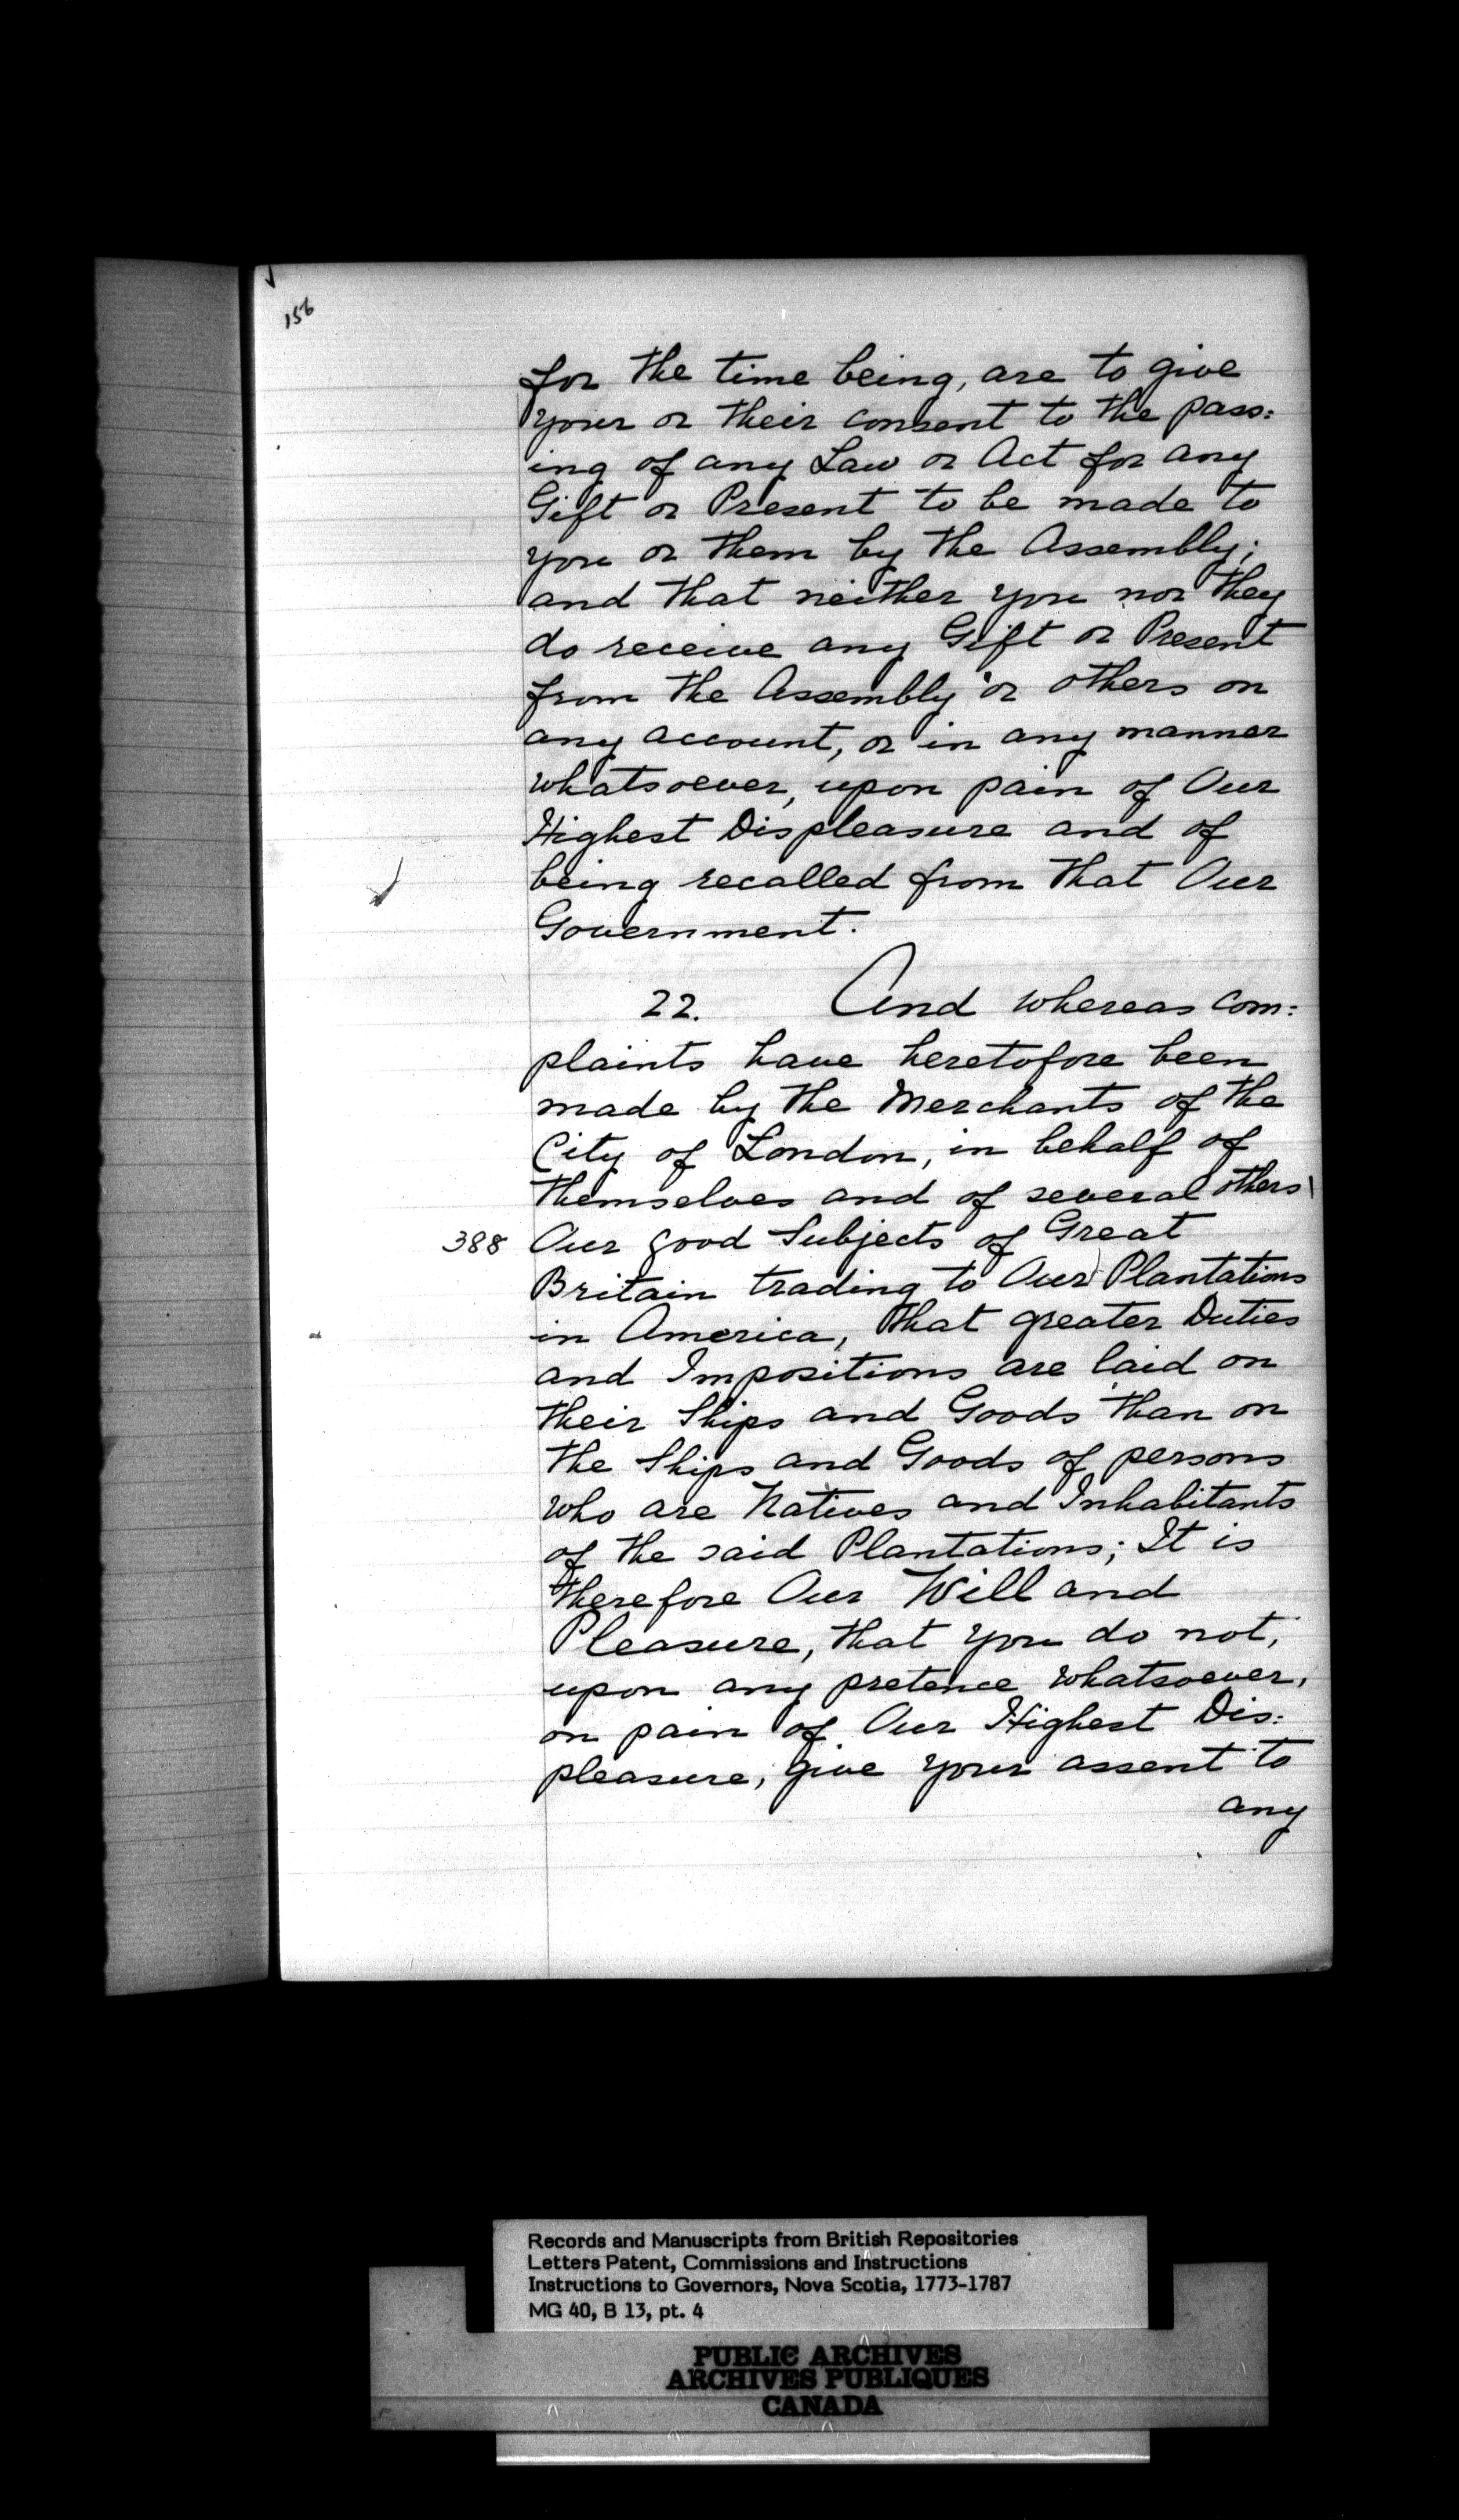 156
for the time being, are to give
your or their consent to the pass:
ing of any Law or Act for any
Gift or Present to be made to
you or them by the Assembly;
and that neither you nor they
do receive any Gift or Present
from the Assembly or others on
any account, or in any manner
whatsoever, upon pain of Our
Highest Displeasure and of
being recalled from that Our
Government.
22. And whereas com:
plaints have heretofore been
made by the Merchants of the
City of London, in behalf of
themselves and of several others
388 Our good Subjects of Great
Britain trading to Our Plantations
in America, that greater Duties
and Impositions are laid on
their Ships and Goods than on
the Ships and Goods of persons
who are Natives and Inhabitants
of the said Plantations; It is
therefore Our Will and
Pleasure, that you do not,
upon any pretence whatsoever,
on pain of Our Highest Dis:
pleasure, give your assent to
any
Records and Manuscripts from British Repositories
Letters Patent, Commissions and Instructions
Instructions to Governors, Nova Scotia, 1773-1787
MG 40, B 13, pt. 4
PUBLIC ARCHIVES
ARCHIVES PUBLIQUES
CANADA